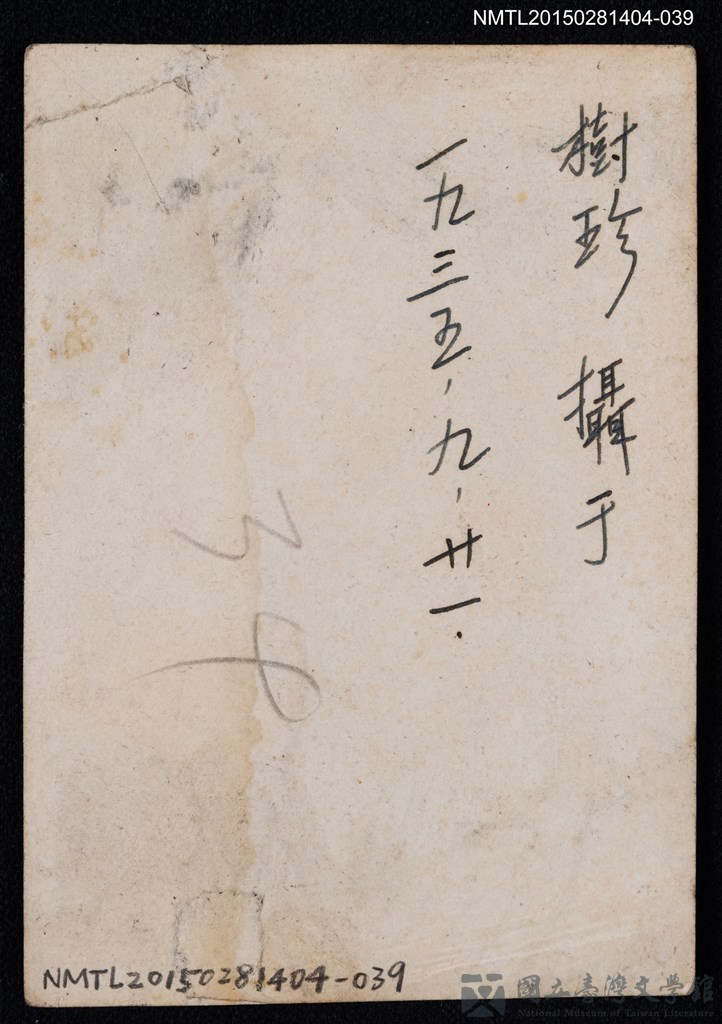 NMTL20150281404-039
樹珍攝于
一九三五、九、廿一.
34
NMTL20150281404-039
國立臺灣文學館
National Museum of Taiwan Literature